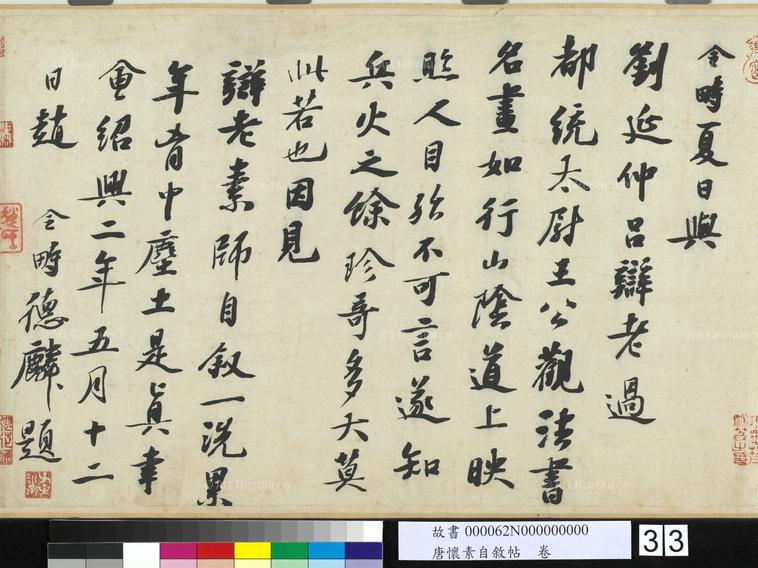 令畤夏日與
劉延仲呂辯老過
都統太尉王公觀法書
名畫如行山陰道上映
照人目殆不可言遂知
兵火之餘珍奇多大莫
此若也因見
辯老素師自敘一洗累
年胷中塵土是真幸
會紹興二年五月十二
日趙 令畤德麟題
故書 000062N000000000
唐懷素自敘帖 卷
33
Art Resource